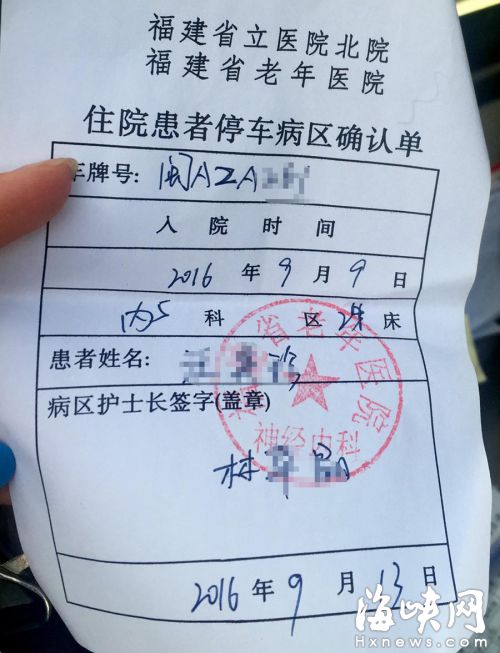 福建省立医院北院
福建省老年医院
住院患者停车病区确认单
车牌号: 闽AZA
入院时间
2016 年 9 月 9 日
内5 科 区 床
患者姓名:
病区护士长签字(盖章)
福建省老年医院
神经内科
林
2016 年 9 月 13 日
海峡网
Hxnews.com